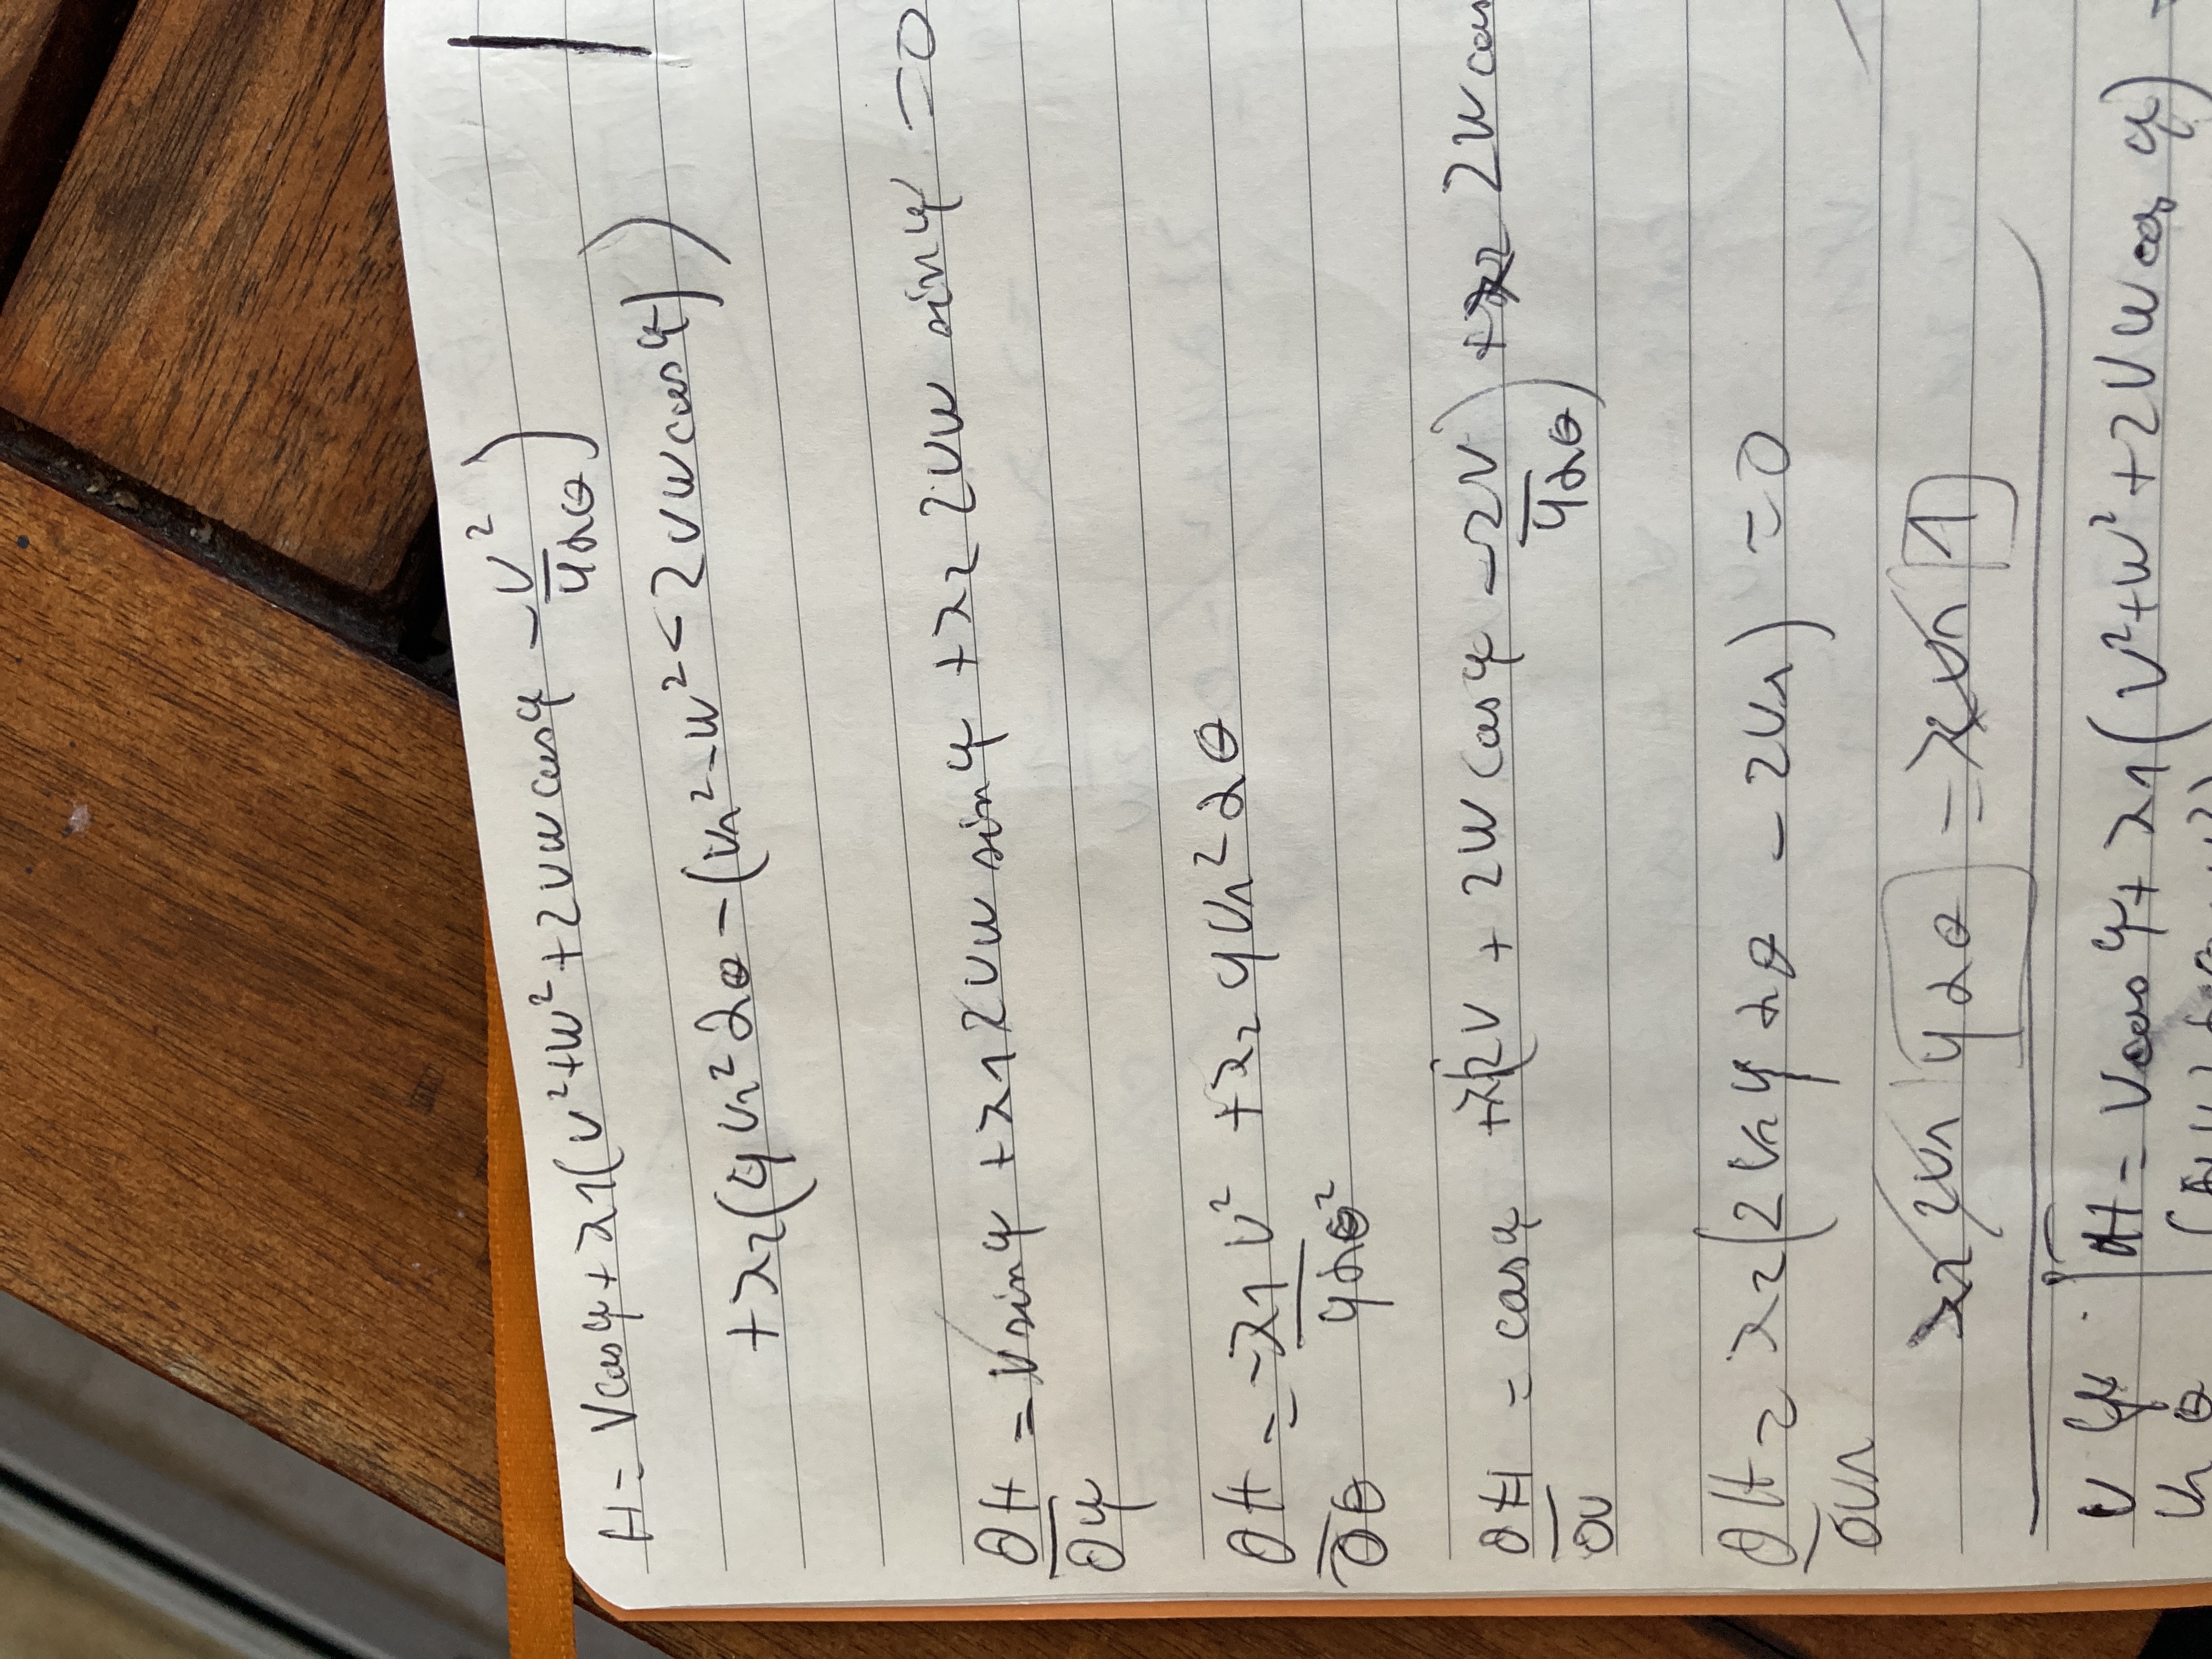 H = Vcosφ + λ1(v² + w² + 2vwcosφ − v²/4αθ)
+ λ2(4vr²αθ − (vr² − w² < 2vwcosφ))
∂H/∂φ = Vsinφ + λ1 2vw sinφ + λ2 2vw sinφ = 0
∂H/∂θ = −λ1v²/4αθ² + λ2 4vr²αθ
∂H/∂v = cosφ + λ(2v + 2w cosφ − 2v/4αθ) + λ2 2w cos
∂H/∂vr = λ2(2vr4αθ − 2vr) = 0
λ2 2vr 4αθ = λvr 1
v φ H = Vcosφ + λ1(v² + w² + 2vw cosφ)
vr θ